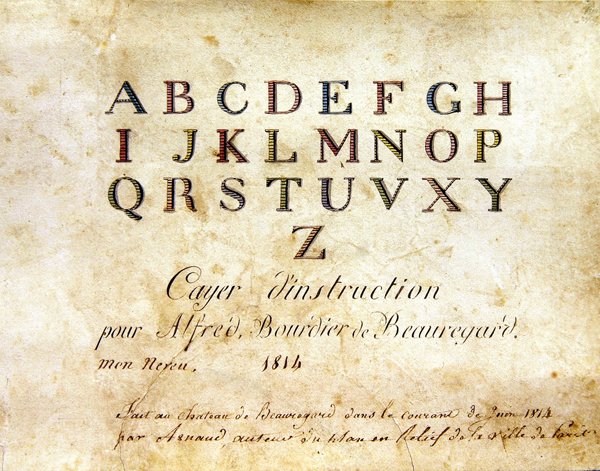 A B C D E F G H
I J K L M N O P
Q R S T U V X Y
Z
Cayer d'instruction
pour Alfred, Bourdier de Beauregard.
mon Neveu. 1814
Fait au Chateau de Beauregard dans le courant de Juin 1814
par Arnaud, auteur du plan en Relief de la ville de Paris